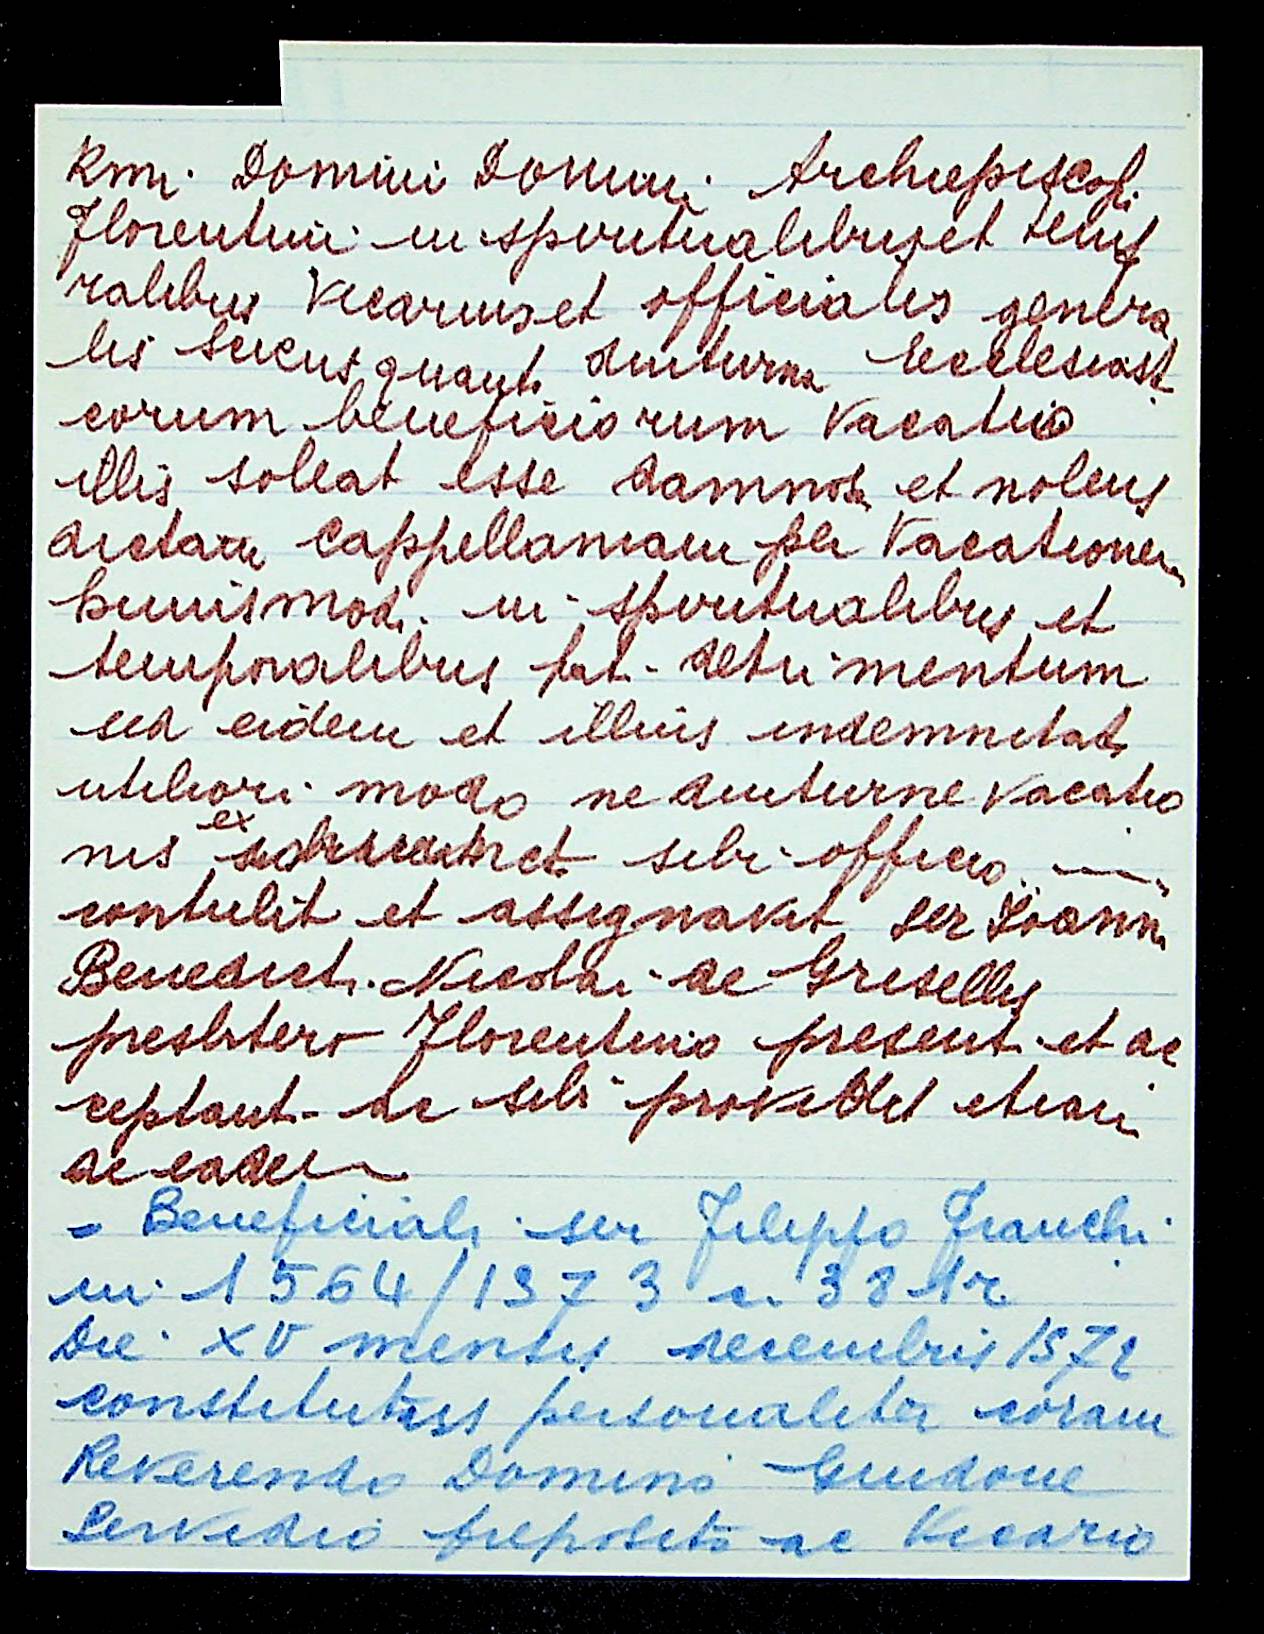 Rmi. Domini Domini Archiepiscopi
Florentini in spiritualibus et temp
ralibus Vicarius et officialis genera
lis sciens quant. diuturna Ecclesiasti
corum beneficiorum vacatio
illis soleat esse damnosa et nolens
dictam Cappellaniam per Vacationem
huiusmodi in spiritualibus et
temporalibus pat. detrimentum
sed eidem et illius indemnitati
utiliori modo ne diuturne vacatio
nis ex et sibi officio
contulit et assignavit ser Ioanni
Benedicti Nicolai de Grisellis
presbitero Florentino present. et ac
ceptant. ac sibi providet etiam
de eadem
= Beneficiali ser Filippo Franchi
in 1564/1573 c. 38
Die XV mensis decembris 1572
constitutus personaliter coram
Reverendo Domino Guidone
Servidio preposito ac Vicario